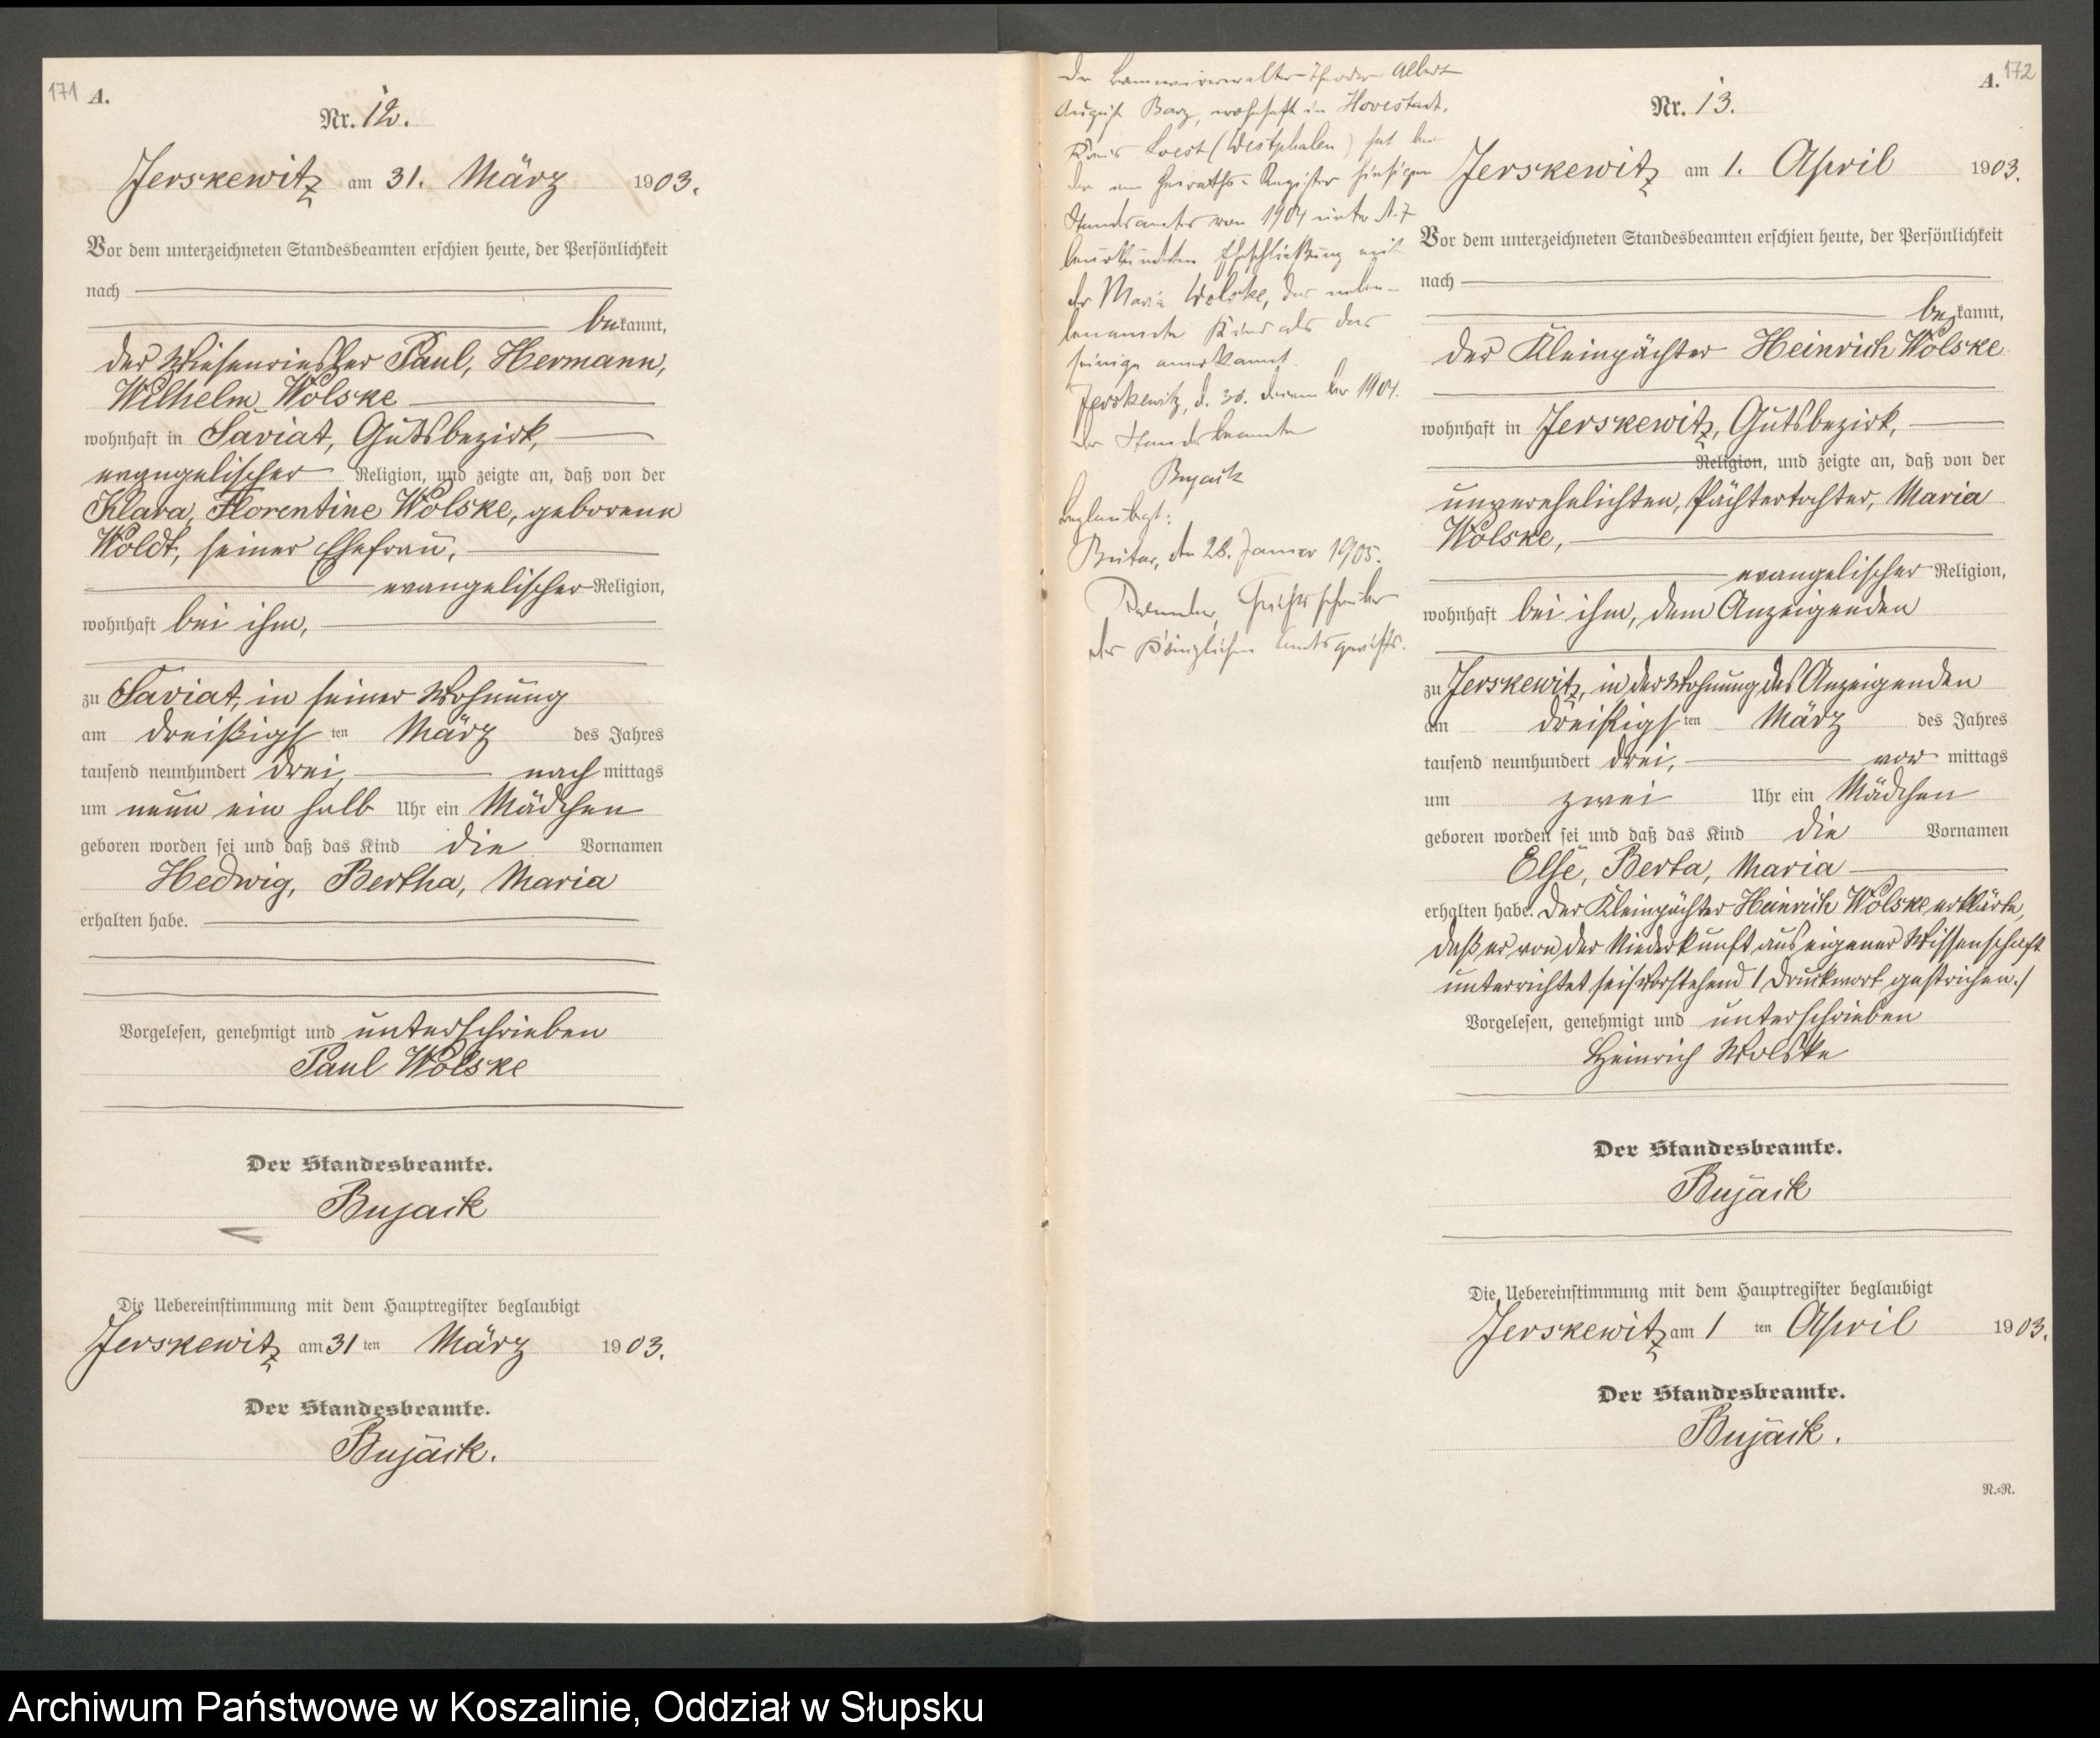 171 A.
Nr. 12.
Jerskewitz am 31. März 1903.
Vor dem unterzeichneten Standesbeamten erschien heute, der Persönlichkeit
nach
bekannt,
der Wiesenriesler Paul, Hermann,
Wilhelm Wolske
wohnhaft in Saviat, Gutsbezirk,
evangelischer Religion, und zeigte an, daß von der
Klara, Florentine Wolske, geborene
Woldt, seiner Ehefrau,
evangelischer Religion,
wohnhaft bei ihm,
zu Saviat, in seiner Wohnung
am dreißigsten März des Jahres
tausend neunhundert drei, nach mittags
um neun ein halb Uhr ein Mädchen
geboren worden sei und daß das Kind die Vornamen
Hedwig, Bertha, Maria
erhalten habe.
Vorgelesen, genehmigt und unterschrieben
Paul Wolske
Der Standesbeamte.
Bujack
Die Uebereinstimmung mit dem Hauptregister beglaubigt
Jerskewitz am 31 ten März 1903.
Der Standesbeamte.
Bujack.
Der Theodor Albert
August Barz, wohnhaft in Hovestadt,
Kreis Soest (Westphalen) hat bei
der im Heiraths-Register hiesigen
Standesamts von 1904 unter N. 7
beurkundeten Eheschließung mit
der Maria Wolske, das neben-
benannte Kind als das
seinige anerkannt.
Jerskewitz, d. 30. Dezember 1904.
Der Standesbeamte
Bujack
Beglaubigt:
Bütow, den 28. Januar 1905.
Gerichtsschreiber
des Königlichen Amtsgerichts.
A. 172
Nr. 13.
Jerskewitz am 1. April 1903.
Vor dem unterzeichneten Standesbeamten erschien heute, der Persönlichkeit
nach
bekannt,
der Kleinpächter Heinrich Wolske
wohnhaft in Jerskewitz, Gutsbezirk,
Religion, und zeigte an, daß von der
unverehelichten, Pächtertochter, Maria
Wolske,
evangelischer Religion,
wohnhaft bei ihm, dem Anzeigenden
zu Jerskewitz, in der Wohnung des Anzeigenden
am dreißigsten März des Jahres
tausend neunhundert drei, vor mittags
um zwei Uhr ein Mädchen
geboren worden sei und daß das Kind die Vornamen
Else, Berta, Maria
erhalten habe. Der Kleinpächter Heinrich Wolske erklärte,
daß er von der Niederkunft aus eigener Wissenschaft
unterrichtet sei /Vorstehend 1 Druckwort gestrichen./
Vorgelesen, genehmigt und unterschrieben
Heinrich Wolske
Der Standesbeamte.
Bujack
Die Uebereinstimmung mit dem Hauptregister beglaubigt
Jerskewitz am 1 ten April 1903.
Der Standesbeamte.
Bujack.
N.=R.
Archiwum Państwowe w Koszalinie, Oddział w Słupsku